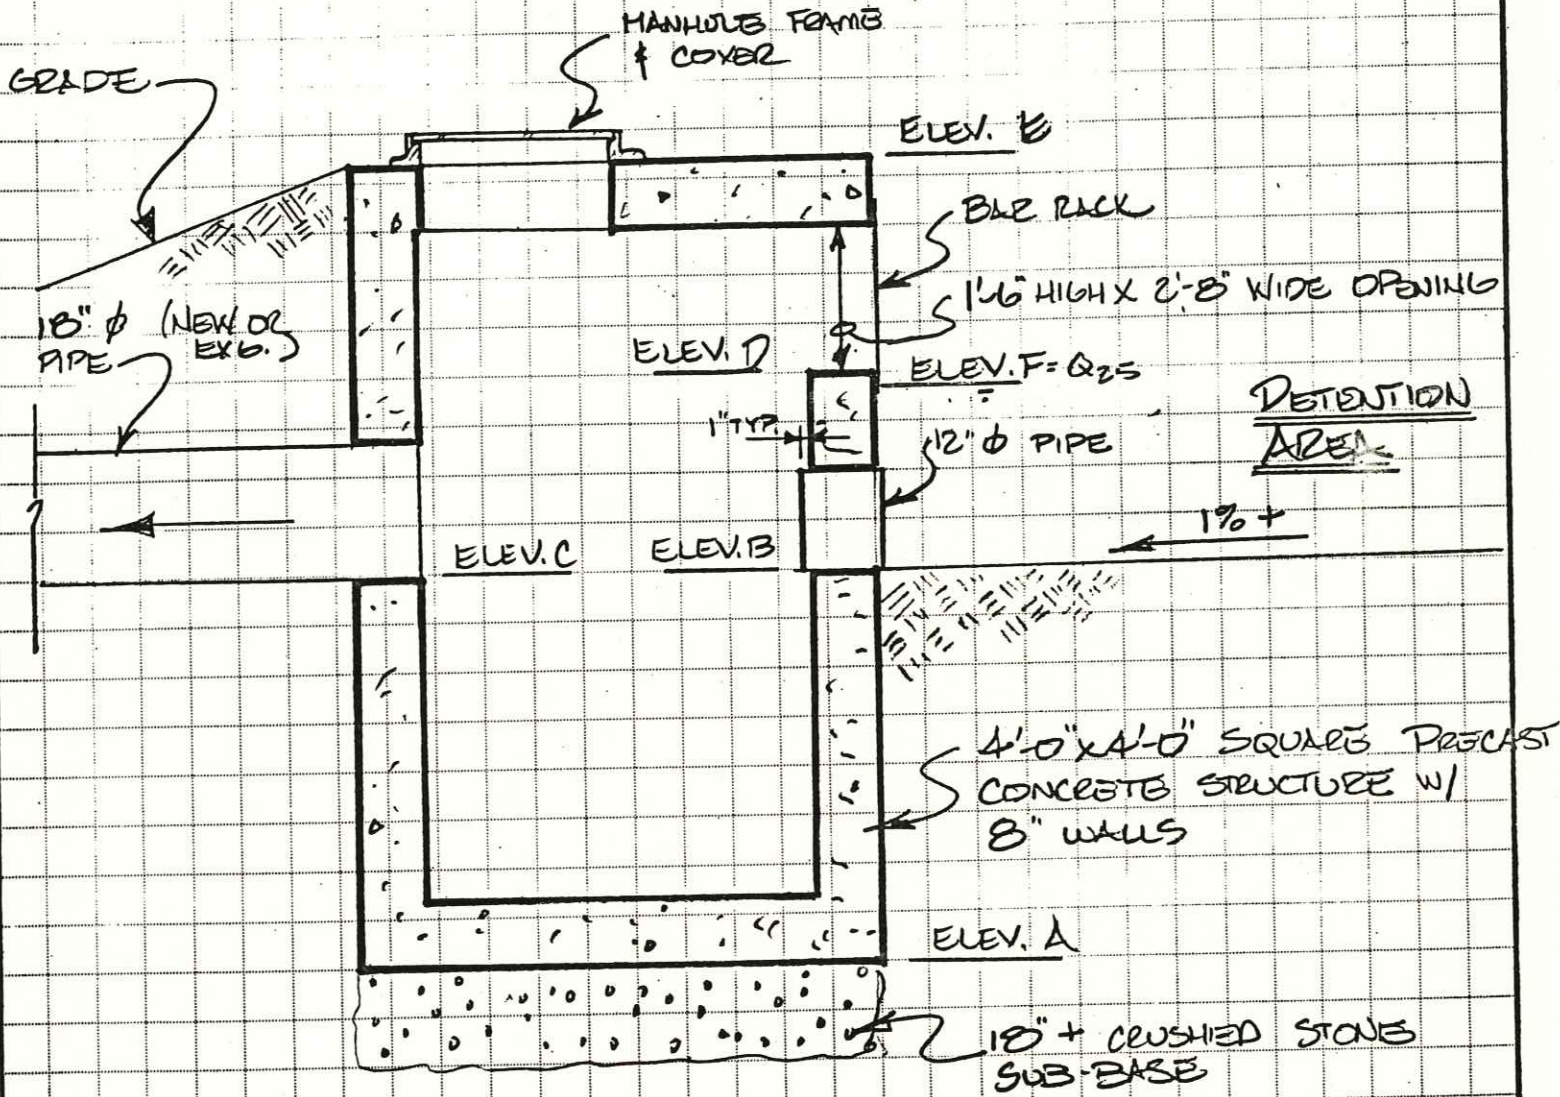 MANHOLE FRAME
& COVER
GRADE
ELEV. E
BAR RACK
1'-6" HIGH X 2'-8" WIDE OPENING
18" φ (NEW OR
PIPE EXG.)
ELEV. D
ELEV. F = Q25
DETENTION
AREA
1" TYP.
12" φ PIPE
1% +
ELEV. C
ELEV. B
4'-0" x 4'-0" SQUARE PRECAST
CONCRETE STRUCTURE W/
8" WALLS
ELEV. A
18" + CRUSHED STONE
SUB-BASE